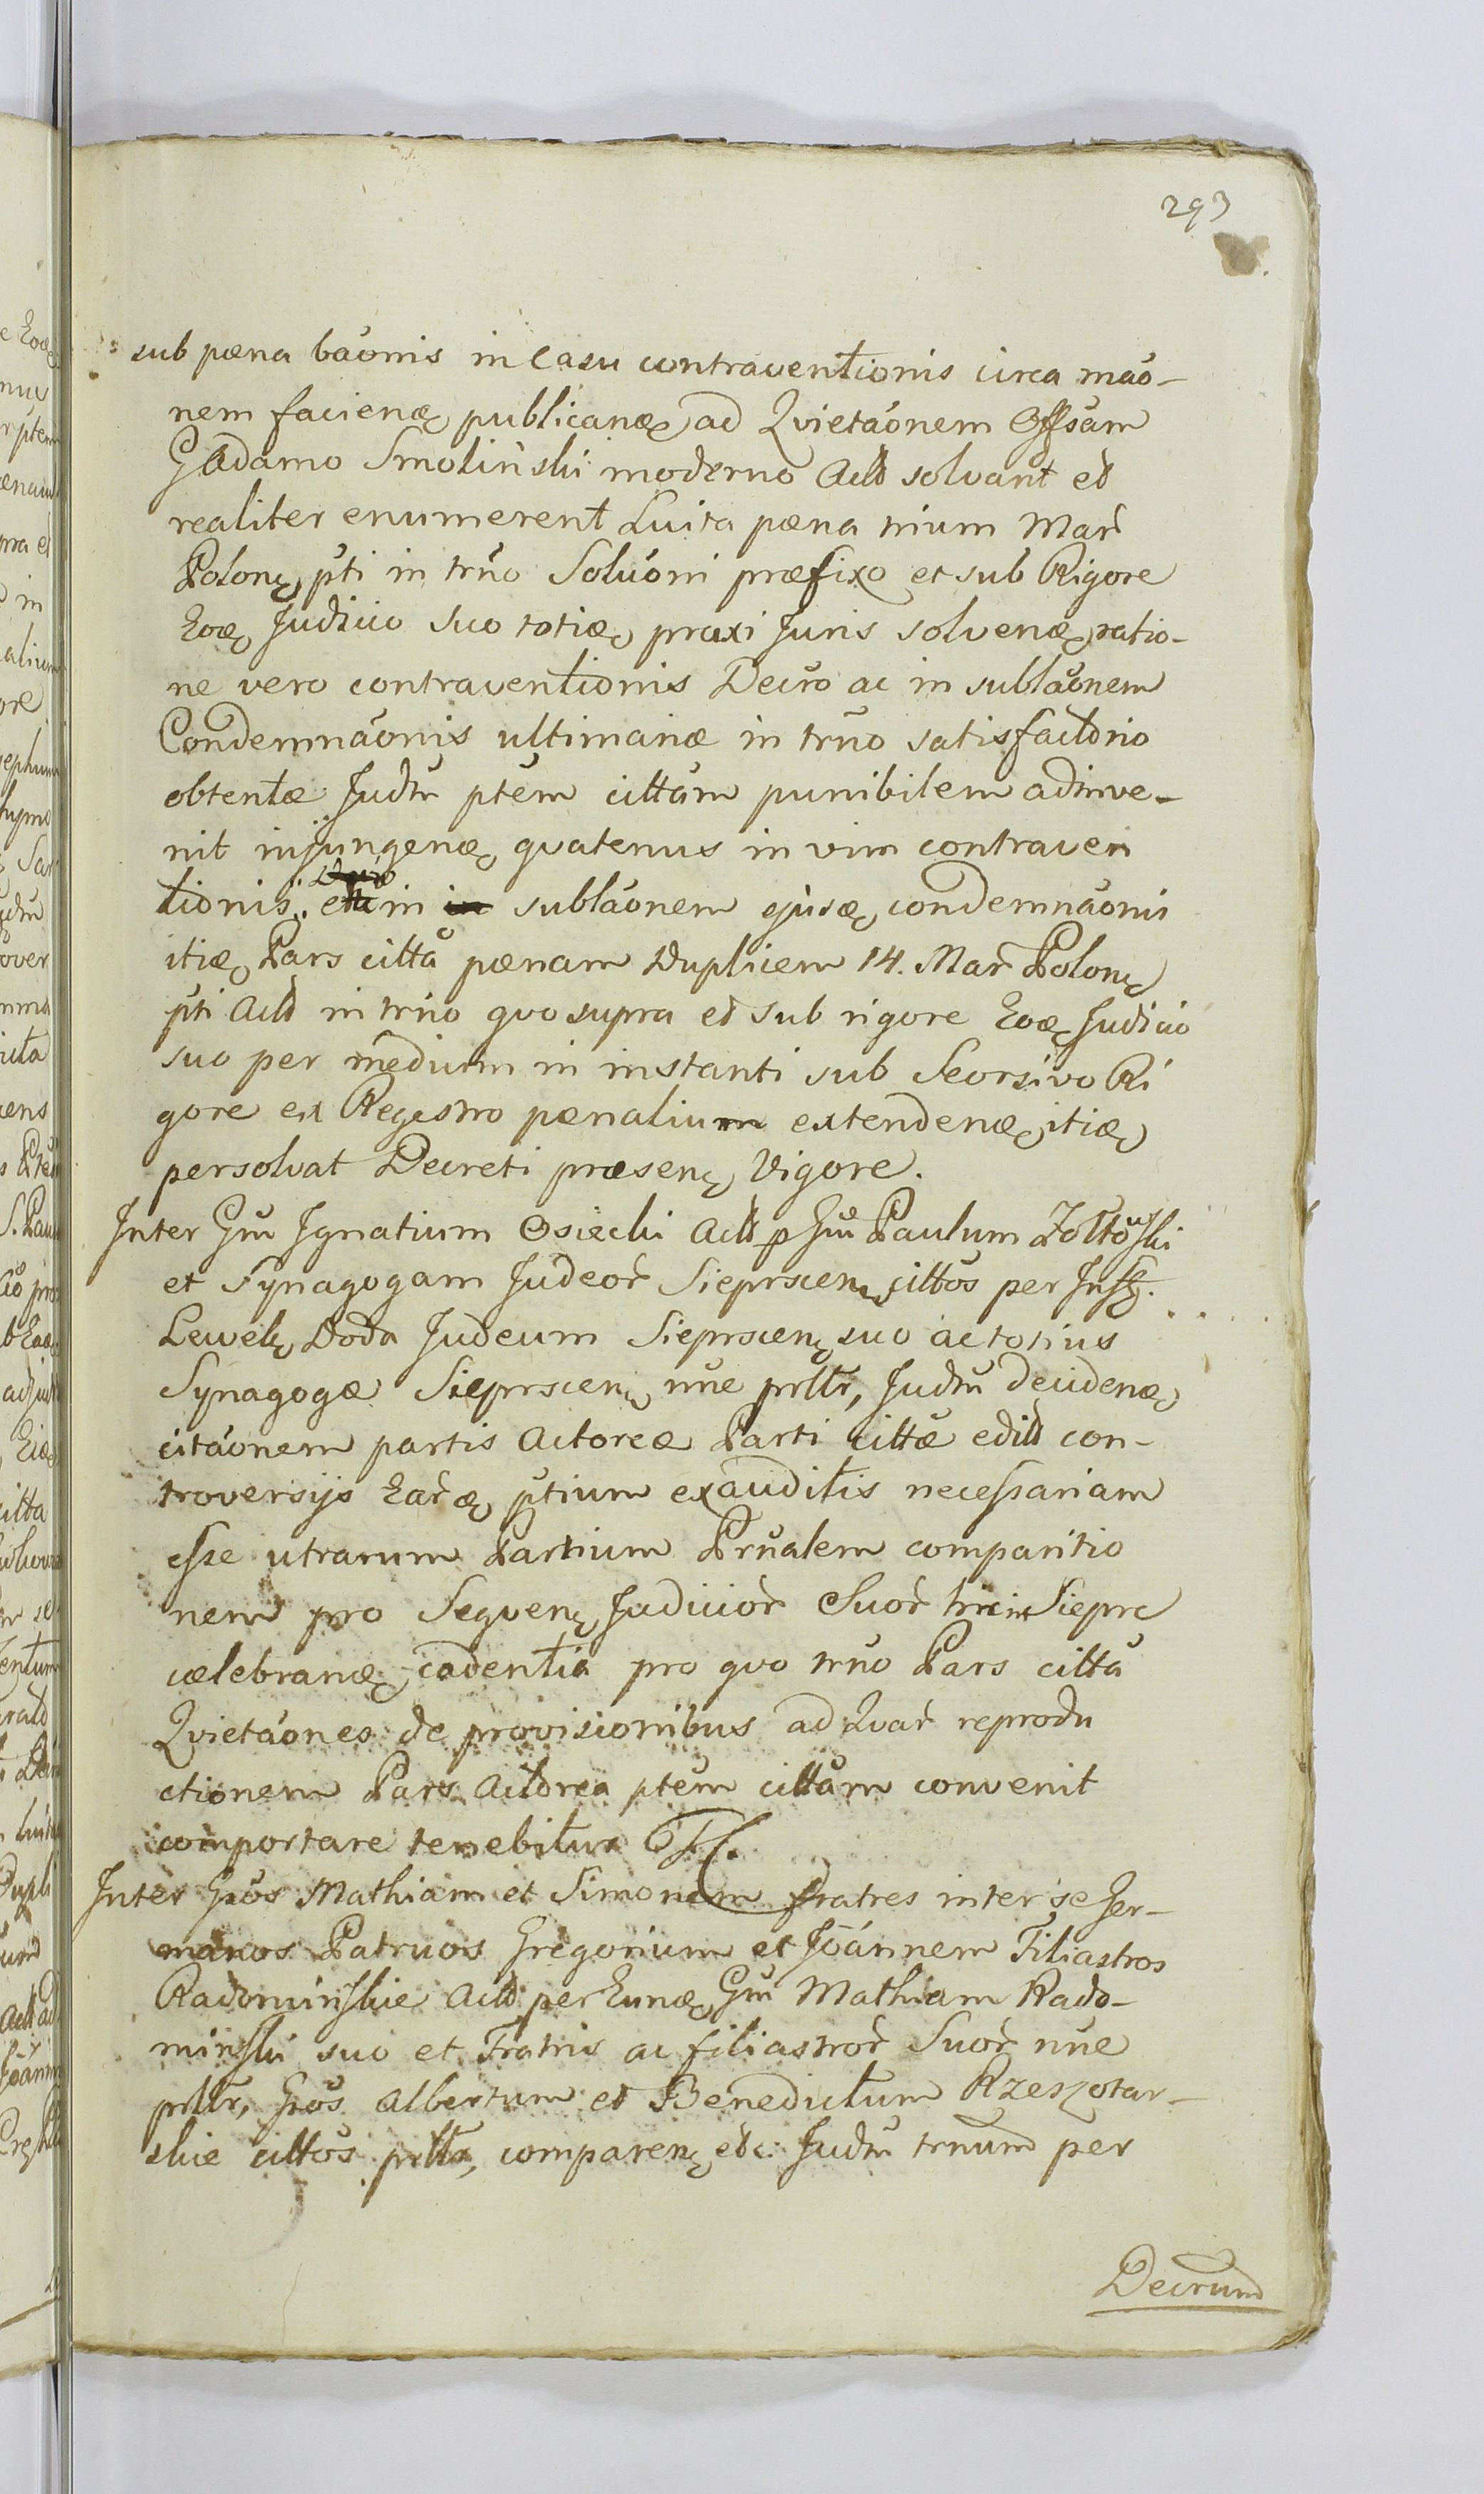 293
sub pœna bãonis in Casu contraventionis circa mão-
nem facienæ publicanæ ad Qvietãonem Offsam
G Adamo Smolinski moderno Actt solvant et
realiter enumerent Luita pœna trium Mar̃
Polonę pti in trño Solvõni præfixo et sub Rigore
Eoæ Judicio suo totiæ praxi Juris solvenæ ratio-
ne vero contraventionis Decr̃o ac in sublãonem
Condemnãonis ultimariæ in trño satisfactorio
obtentæ Judm̃ ptẽm cittãm punibilem adinve-
nit injungenæ qvatenus in vim contraven
tionis et in sublãonem ejusæ condemnãonis
itiæ Pars cittã pœnam Duplicem 14. Mar̃ Polonę
pti Actt in trño qvo supra et sub rigore Eoæ Judicio
suo per medium in instanti sub Seorsivo Ri
gore ex Regestro pœnalium extendenæ itiæ
persolvat Decreti præsenę Vigore.
Inter Gm̃ Ignatium Osiecki Actt p Gm̃ Paulum Zołtowski
et Synagogam Judeor̃ Sieprscenę cittõs per Inf.
Lewek Doda Judeum Sieprscenę suo ac totius
Synagogæ Sieprscenę nñe prttr, Judm̃ decidenæ
citãonem partis Actoreæ Parti cittæ editt con-
troversijs Ear̃æ ptium exauditis necessariam
esse utrarum Partium Prñalem comparitio
nem pro Seqvenę Judicior̃ Suor̃ hic in Siepre
cœlebranæ cadentia pro qvo trño Pars cittã
Qvietãones de provisionibus ad Qvar̃ reprodu
ctionem Pars Actorea ptẽm cittãm convenit
comportare tenebitur
Inter Gõs Mathiam et Simonem fratres inter se Ger-
manos Patruos Gregorium et Joãnnem Filiastros
Radominskie Actt per Eunæ Gm̃ Mathiam Rado-
minski suo et Fratris ac filiastror̃ Suor̃ nñe
prttr, Gõs Albertum et Benedictum Rzeszotar-
skie cittõs prttr, comparenę etc. Judm̃ trnum per
Decrum